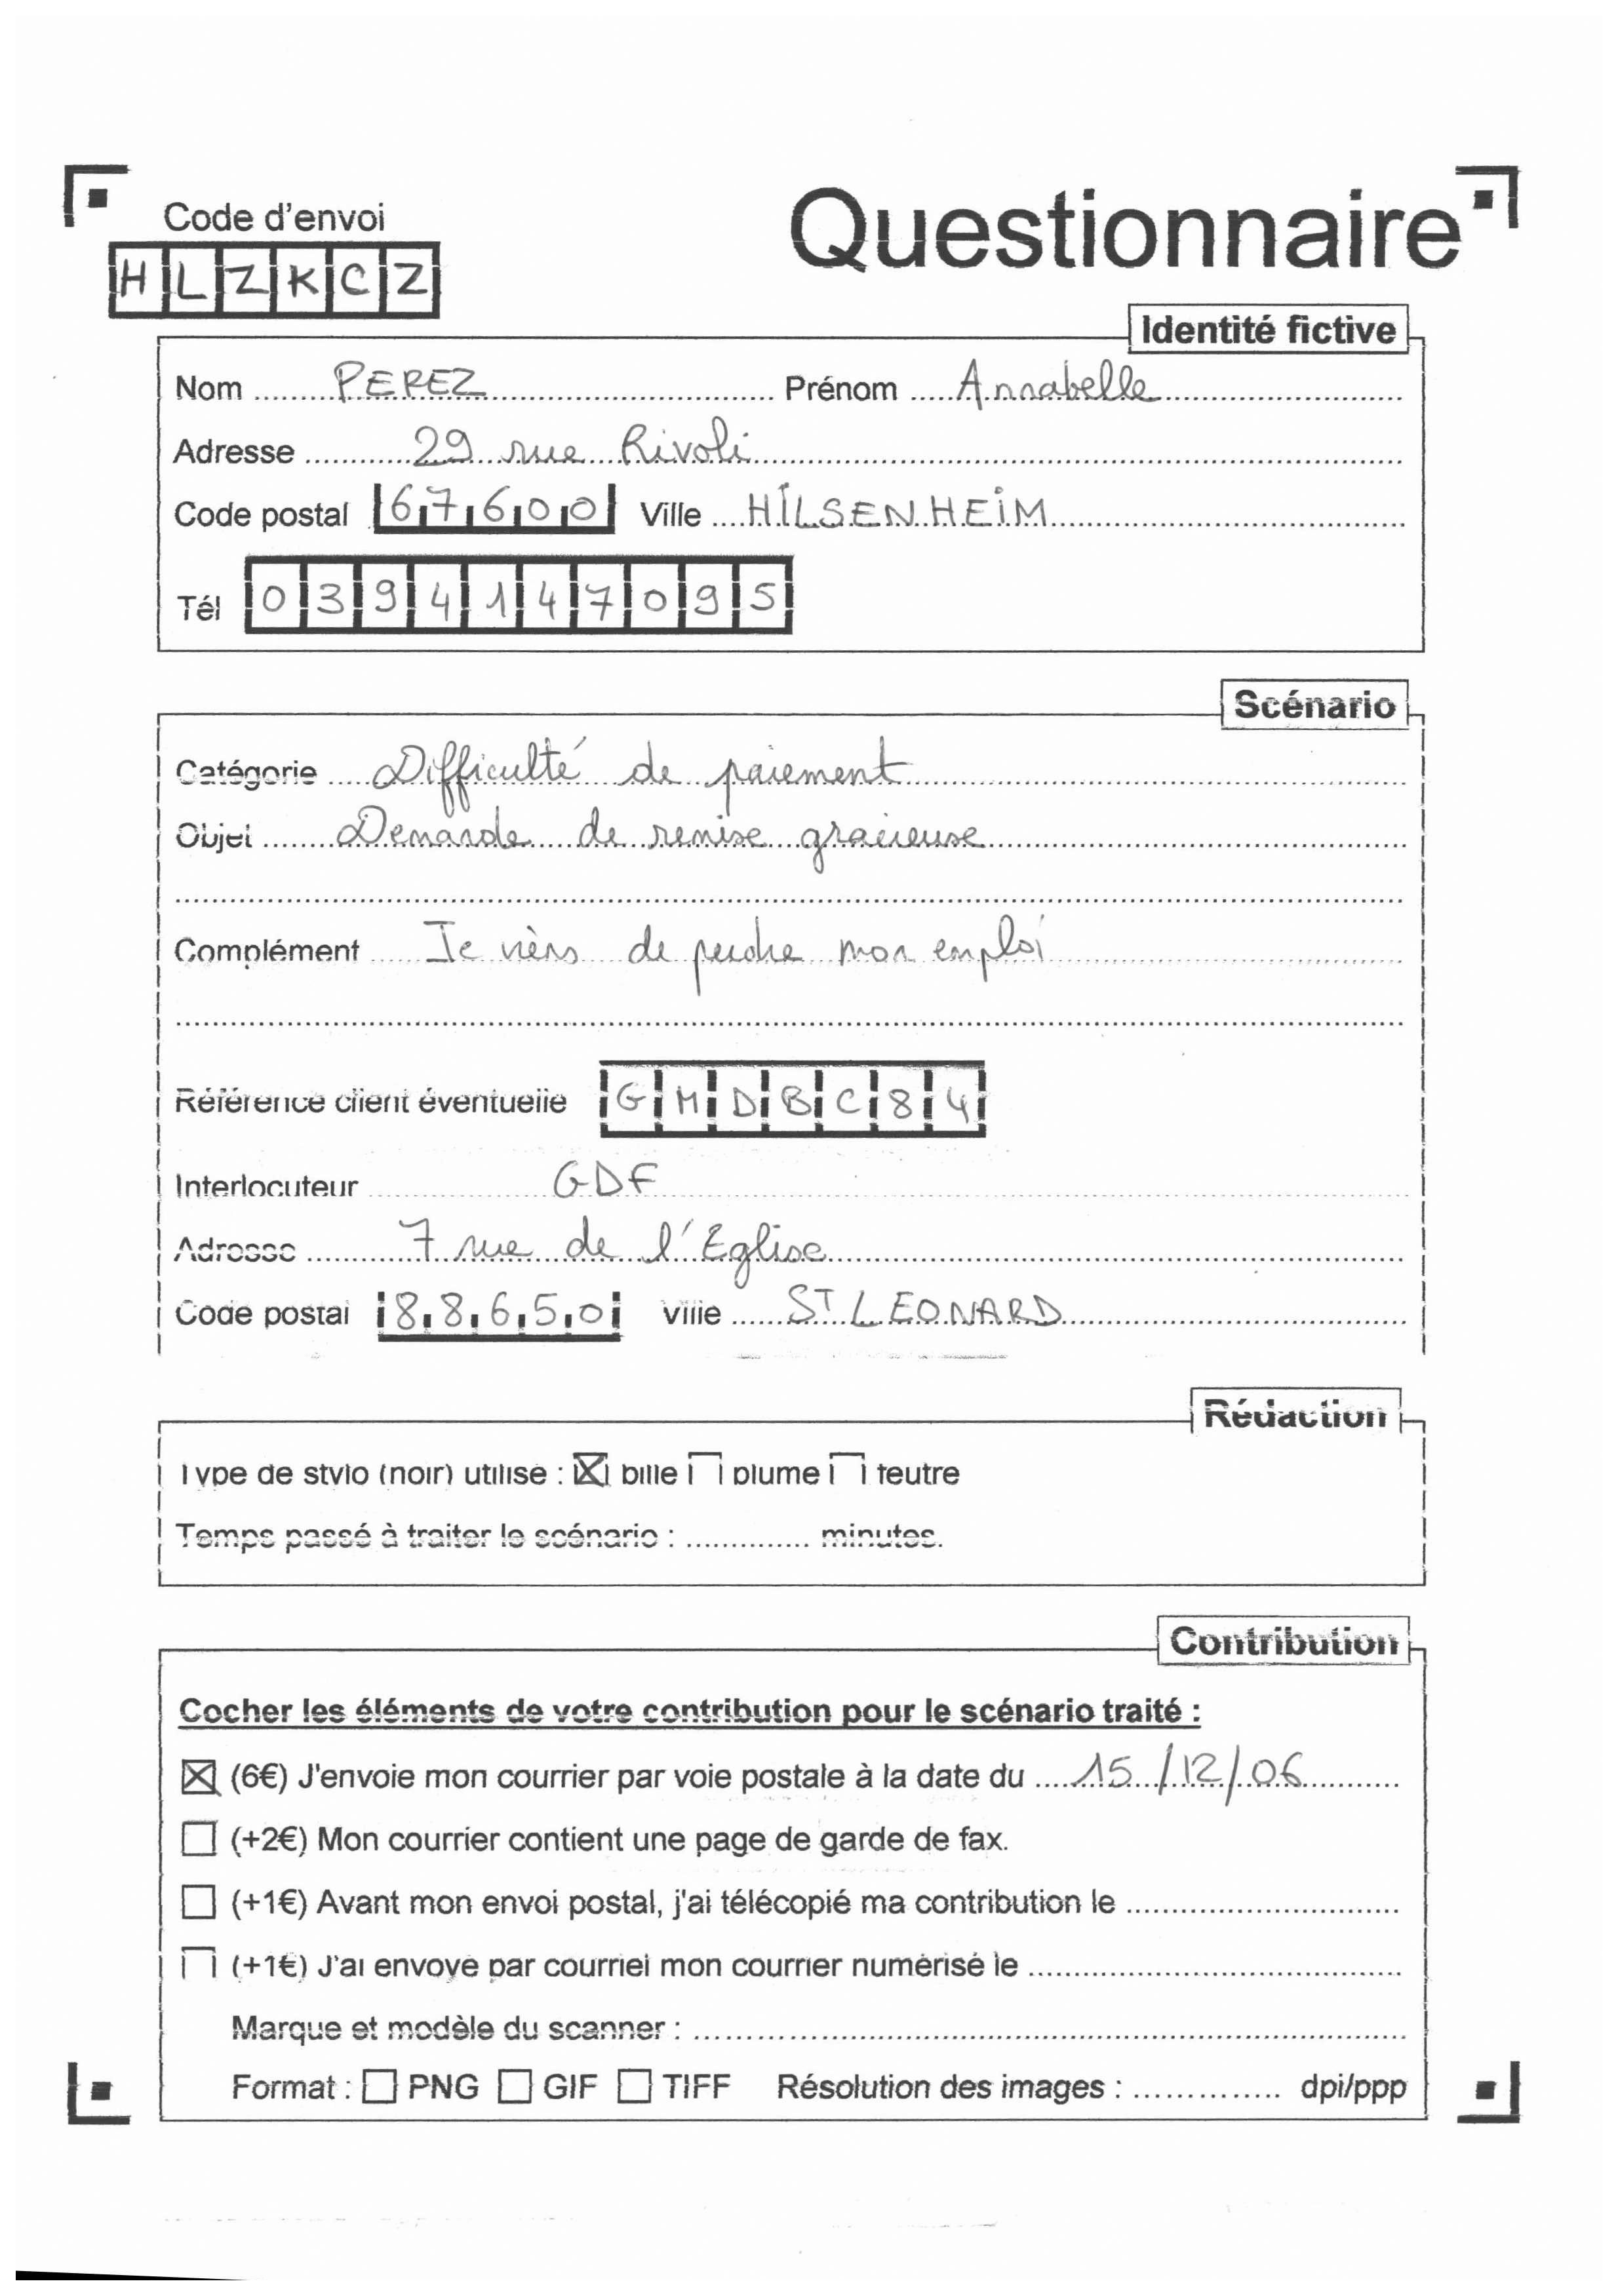 Code d'envoi
HLZKCZ
Questionnaire
Identité fictive
Nom PEREZ Prénom Annabelle
Adresse 29 rue Rivoli
Code postal 67600 Ville HILSENHEIM
Tél 0394147095
Scénario
Catégorie Difficulté de paiement
Objet Demande de remise gracieuse
Complément Je vièns de perdre mon emploi
Référence client éventuelle GMDBC84
Interlocuteur GDF
Adresse 7 rue de l'Eglise
Code postal 88650 Ville ST LEONARD
Rédaction
Type de stylo (noir) utilisé : ☒ bille ☐ plume ☐ feutre
Temps passé à traiter le scénario : ............. minutes.
Contribution
Cocher les éléments de votre contribution pour le scénario traité :
☒ (6€) J'envoie mon courrier par voie postale à la date du 15/12/06
☐ (+2€) Mon courrier contient une page de garde de fax.
☐ (+1€) Avant mon envoi postal, j'ai télécopié ma contribution le ..............................
☐ (+1€) J'ai envoyé par courriel mon courrier numérisé le ..............................
Marque et modèle du scanner : ..............................
Format : ☐ PNG ☐ GIF ☐ TIFF Résolution des images : .............. dpi/ppp